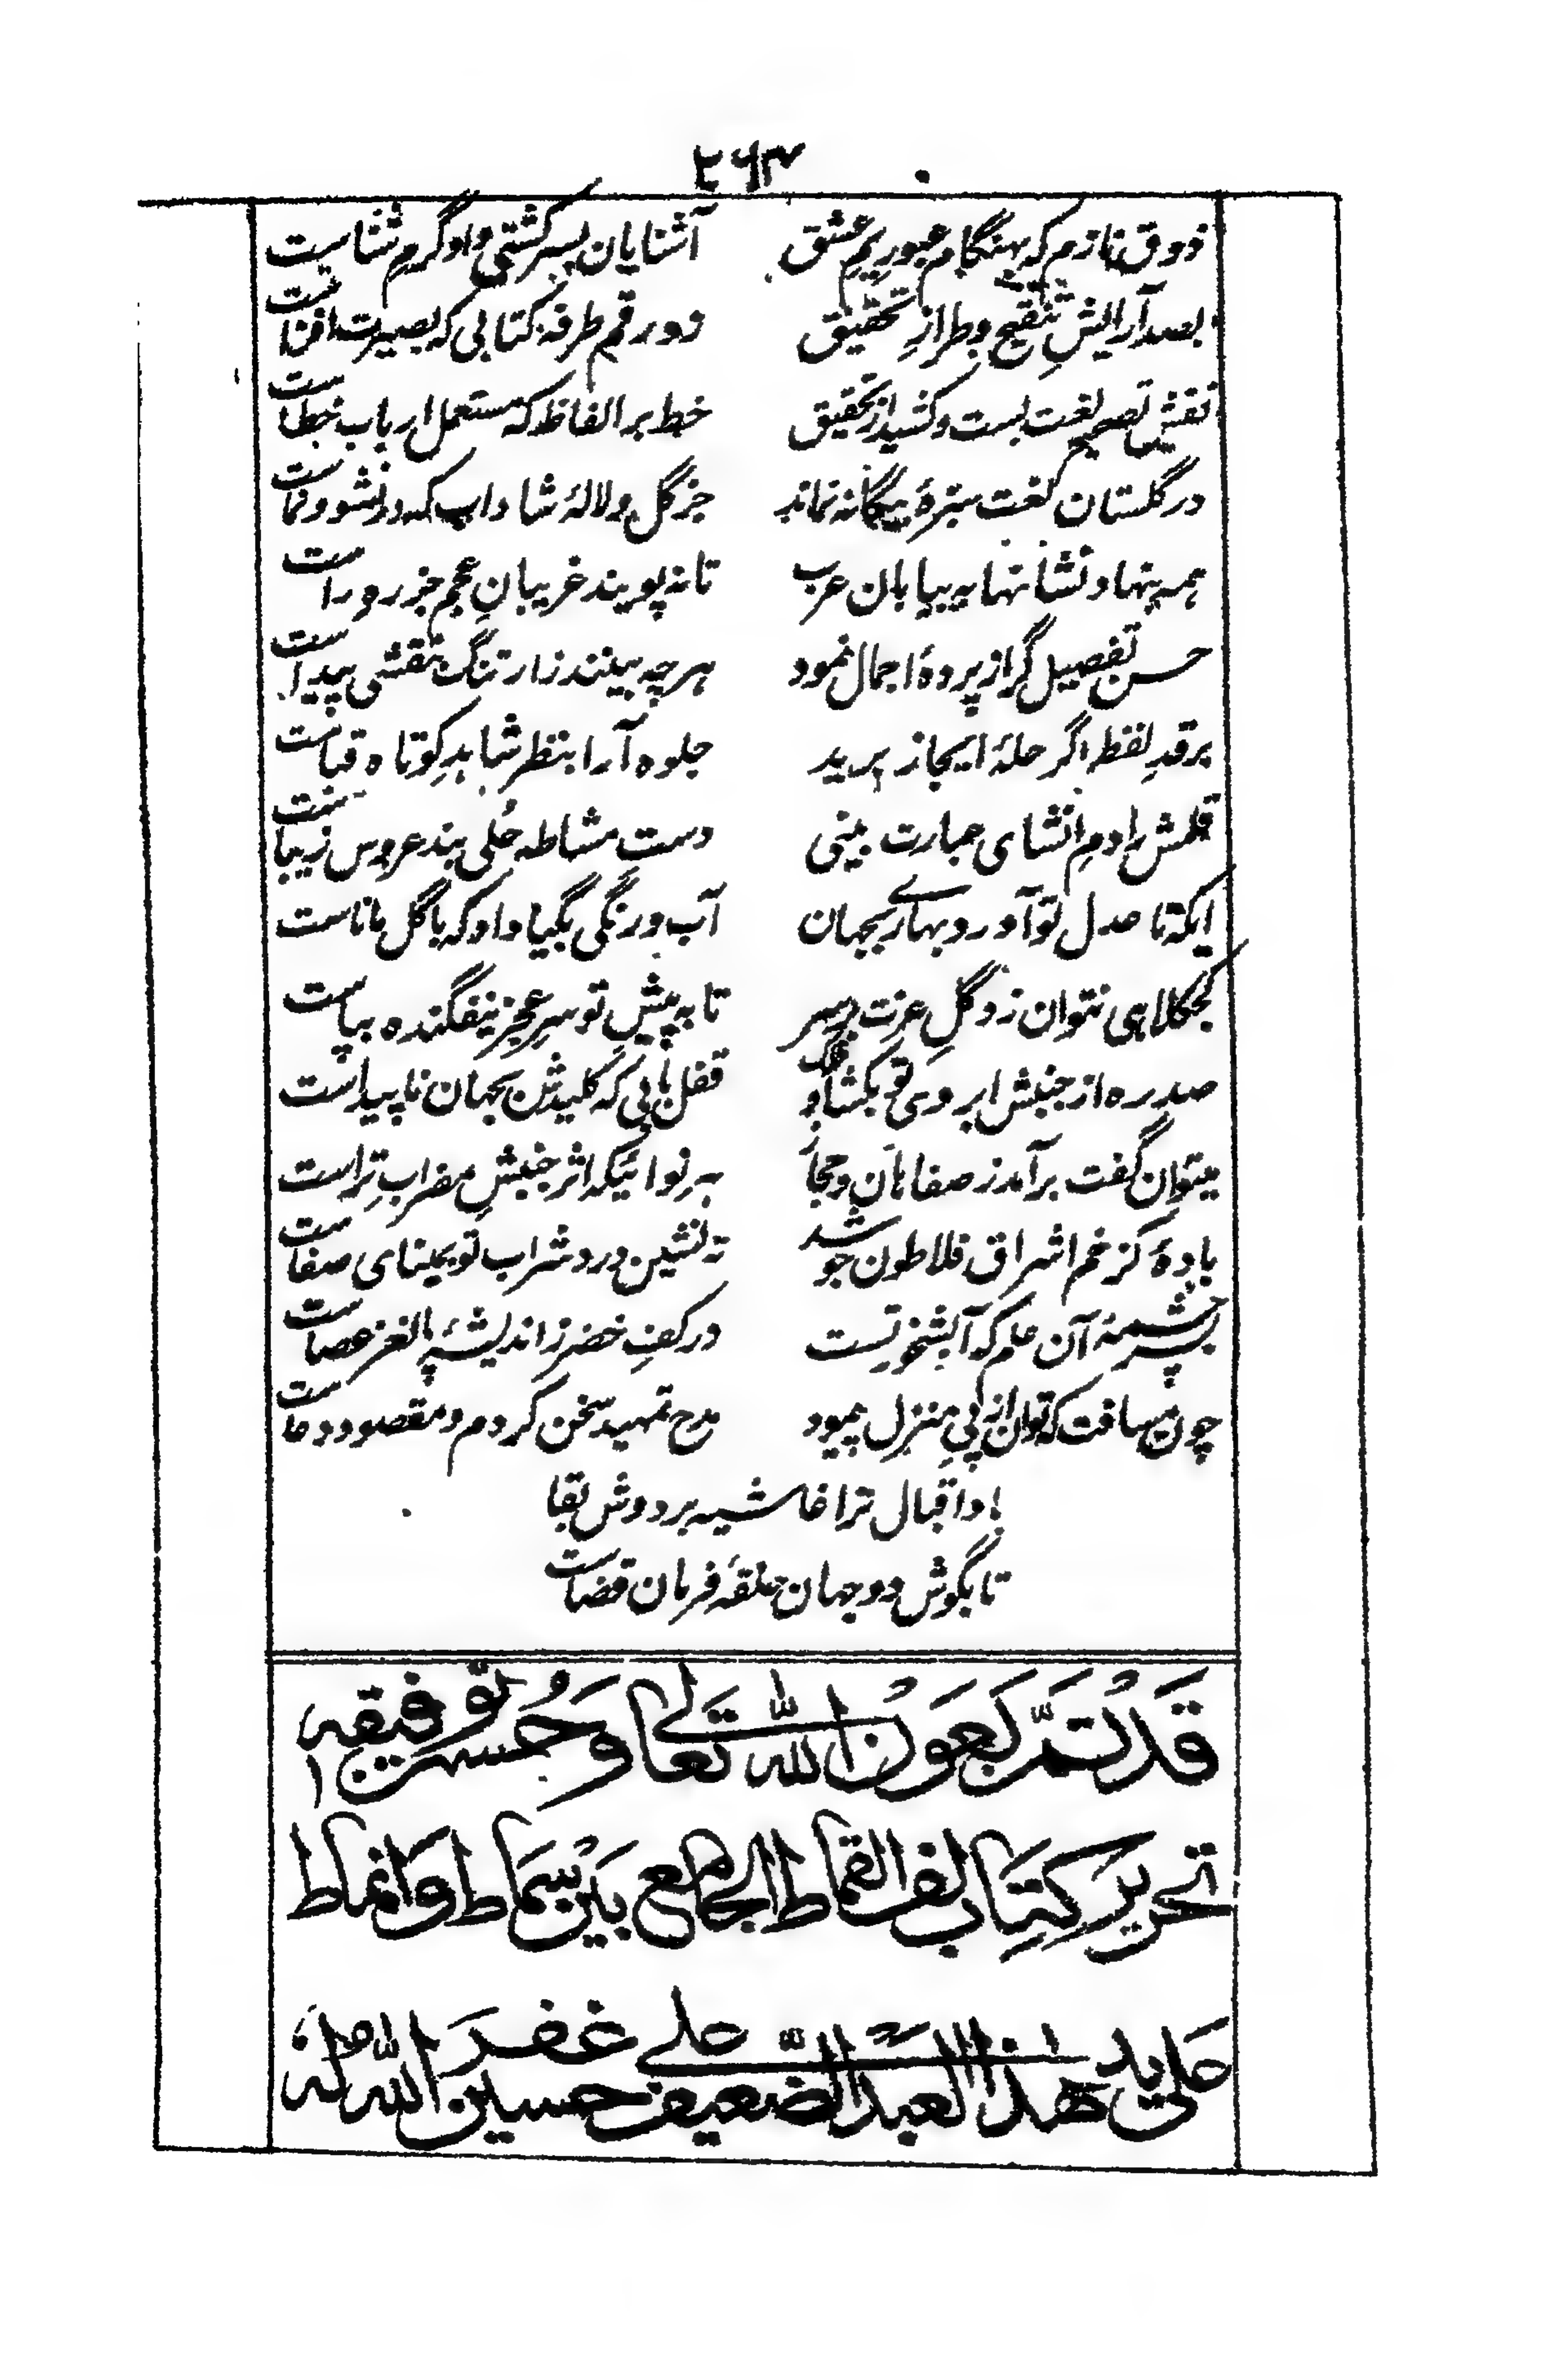 ۲۶۳
ذوق نازم که بهنگام عبور یم عشق آشنایان بسر کشتی و او گرم شناست
بصد آرایشِ تنقیح و طرازِ تحقیق زد رقم طرفه کتابی که بصیرت افزاست
نقشِ تصحیح لغت بست و کشید از تحقیق خط بر الفاظ که مستعمل ارباب خطاست
در گلستان لغت سبزهٔ بیگانه نماند جز گل و لالهٔ شاداب که در نشو و نماست
همه بنهاد نشانها به بیابان عرب تا نه پویند غریبانِ عجم جز ره راست
حسن تفصیل گر از پردهٔ اجمال نمود هر چه بینند ز ارتنگ نقشی پیداست
بر قدِ لفظ اگر حلهٔ ایجاز برید جلوه آرا بنظر شاهدِ کوتاه قباست
قلمش را دمِ انشای عبارت بینی دست مشاطه حُلی بند عروس زیباست
ایکه تا عدل تو آورد بهاری بجهان آب و رنگی بگیا داد که با گل ماناست
کجکلاهی نتوان زد گلِ عزت بر سر تا به پیشِ تو سرِ عجز نیفگنده بپاست
صد ره از جنبش ابروی تو بکشاد فلک قفل هایی که کلیدش بجهان ناپیداست
میتوان گفت برآمد ز صفاهان و حجاز هر نوائیکه اثر جنبشِ مضرابِ تراست
بادهٔ کز خم اشراق فلاطون جوشد ته نشین درد شراب تو بمینای صفاست
بر سر چشمهٔ آن علم که آبشخور تست در کفِ خضر ز اندیشهٔ پا لغز عصاست
چون مسافت که توان از پیِ منزل پیمود مدح تمهید سخن کردم و مقصود دعاست
باد اقبال ترا غاشیه بر دوش بقا
تا بگوش دو جهان حلقهٔ فرمان قضاست
قَدْ تَمَّ بِعَوْنِ اللّٰه تَعَالٰی وَحُسْنِ تَوْفِیقِه
تحریر کِتَاب لف القماط الجامع بَیْن سِمَاط وَانماط
عَلی ید هٰذا العبد الضّعیف علی حسین غفر اللّٰه لَهٗ